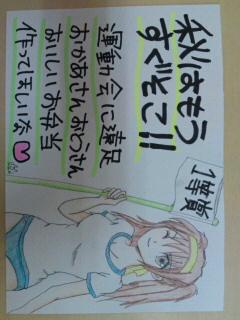 秋はもう
すぐそこ!!
運動会に遠足
おかあさんおとうさん
おいしいお弁当
作ってほしいな♡
1等賞